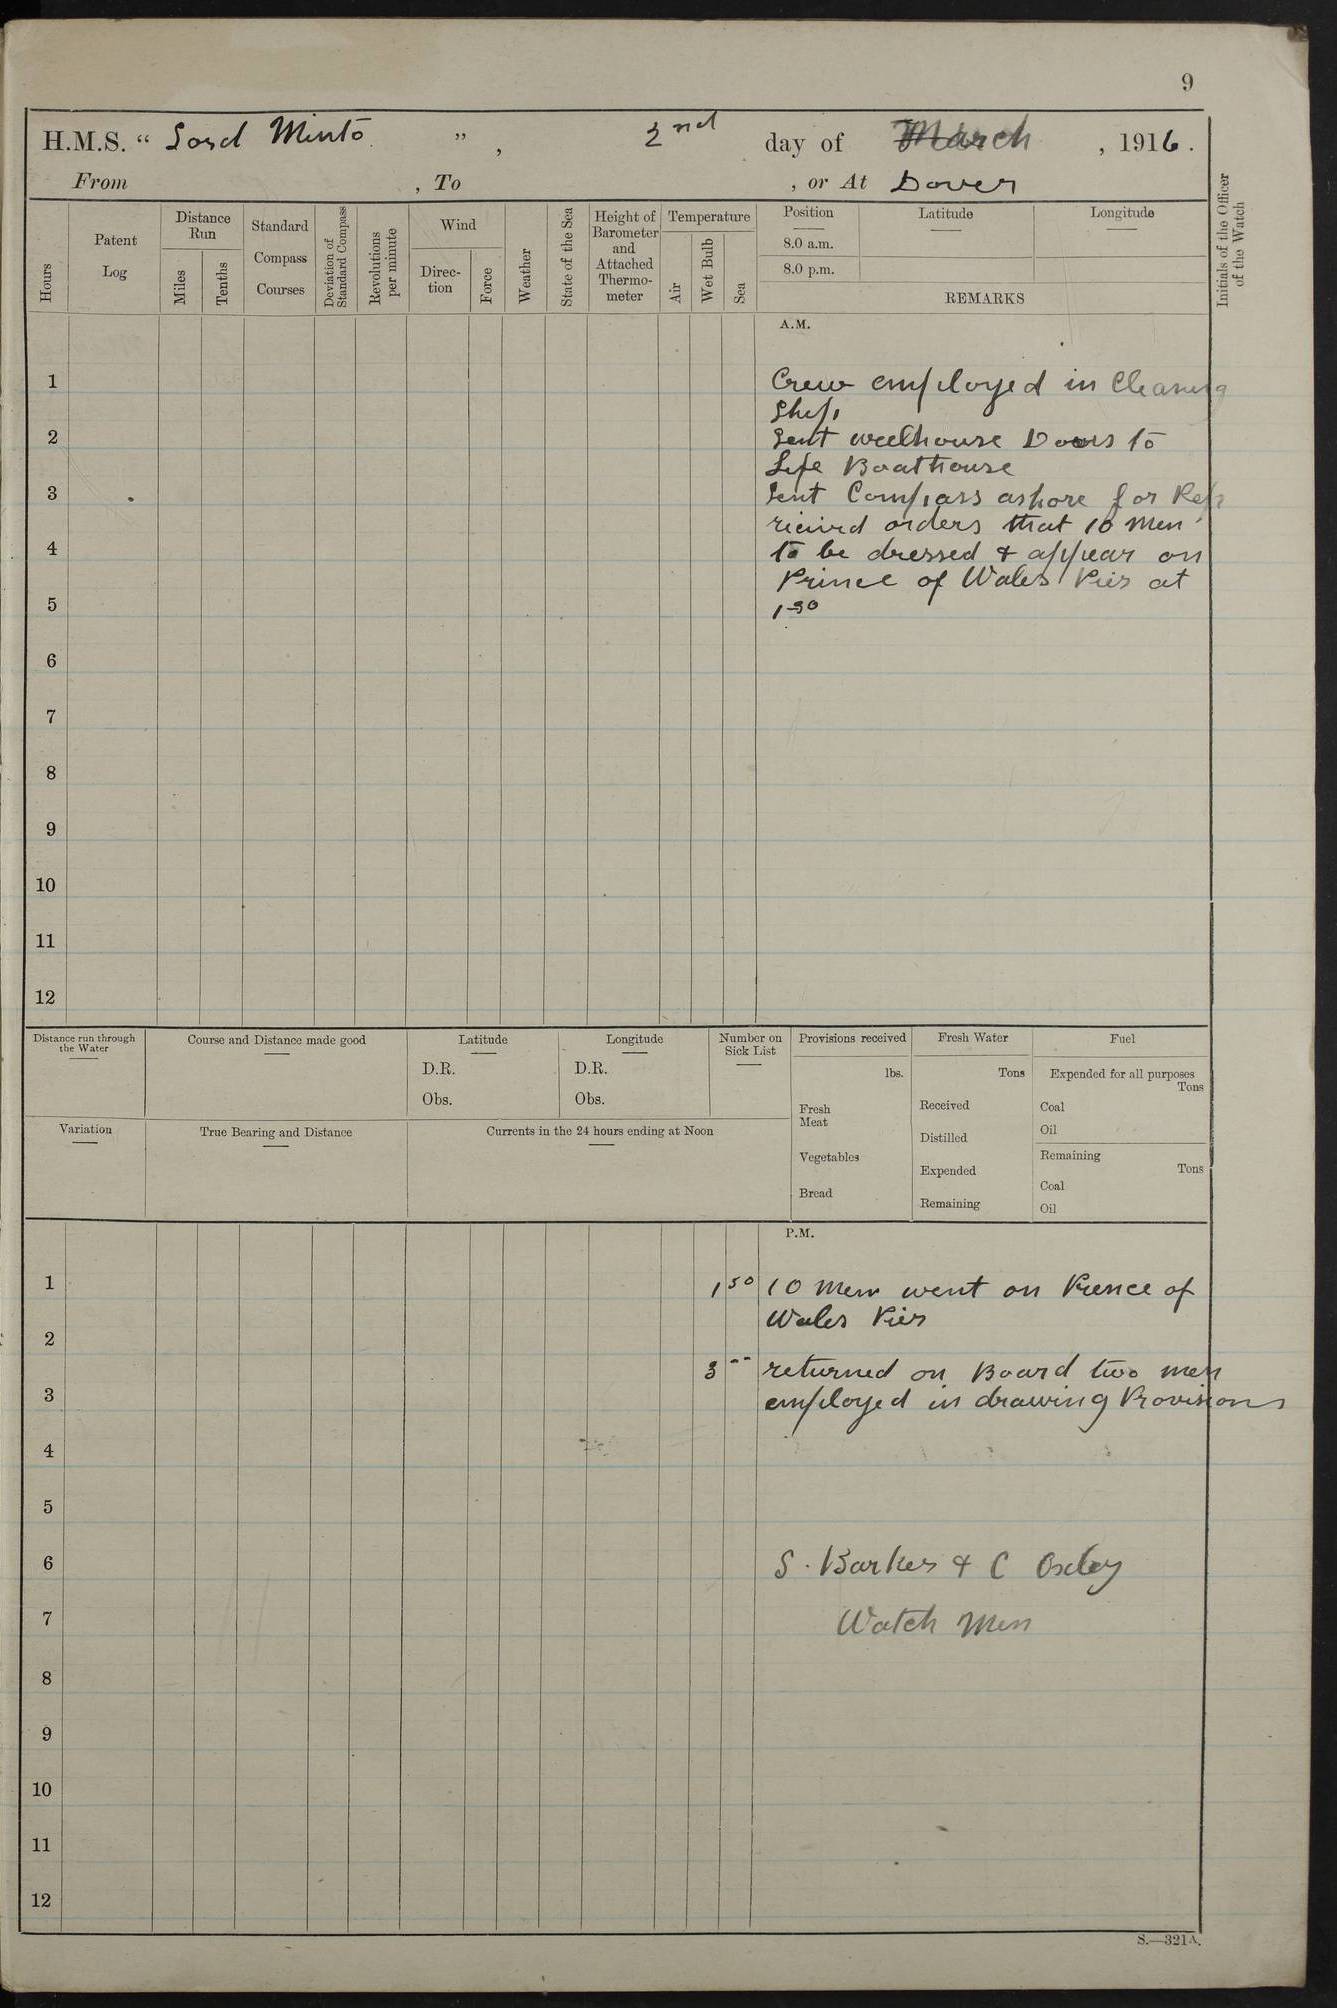 9
H.M.S. “ Lord Minto ” , 2nd day of March , 1916 .
From , To , or At Dover
Hours
Patent Log
Distance Run
Miles
Tenths
Standard Compass Courses
Deviation of Standard Compass
Revolutions per minute
Wind
Direc-tion
Force
Weather
State of the Sea
Height of Barometer and Attached Thermo-meter
Temperature
Air
Wet Bulb
Sea
Position
8.0 a.m.
8.0 p.m.
Latitude
Longitude
REMARKS
Initials of the Officer of the Watch
A.M.
1 Crew employed in Cleaning
Ship
2 Sent weelhouse Doors to
Life Boathouse
3 Sent Compass ashore for Repr
ricived orders that 10 Men
4 to be dressed & appear on
Prince of Wales Pier at
5 1-30
6
7
8
9
10
11
12
Distance run through the Water
Course and Distance made good
Latitude
D.R.
Obs.
Longitude
D.R.
Obs.
Number on Sick List
Provisions received
lbs.
Fresh Meat
Vegetables
Bread
Fresh Water
Tons
Received
Distilled
Expended
Remaining
Fuel
Expended for all purposes
Tons
Coal
Oil
Remaining
Tons
Coal
Oil
Variation
True Bearing and Distance
Currents in the 24 hours ending at Noon
P.M.
1 1 50 10 Men went on Prence of
Wales Pier
2
3 -- returned on Board two men
3 employed in drawing Provisions
4
5
6 S. Barker & C Oxley
7 Watch Men
8
9
10
11
12
S.—321A.